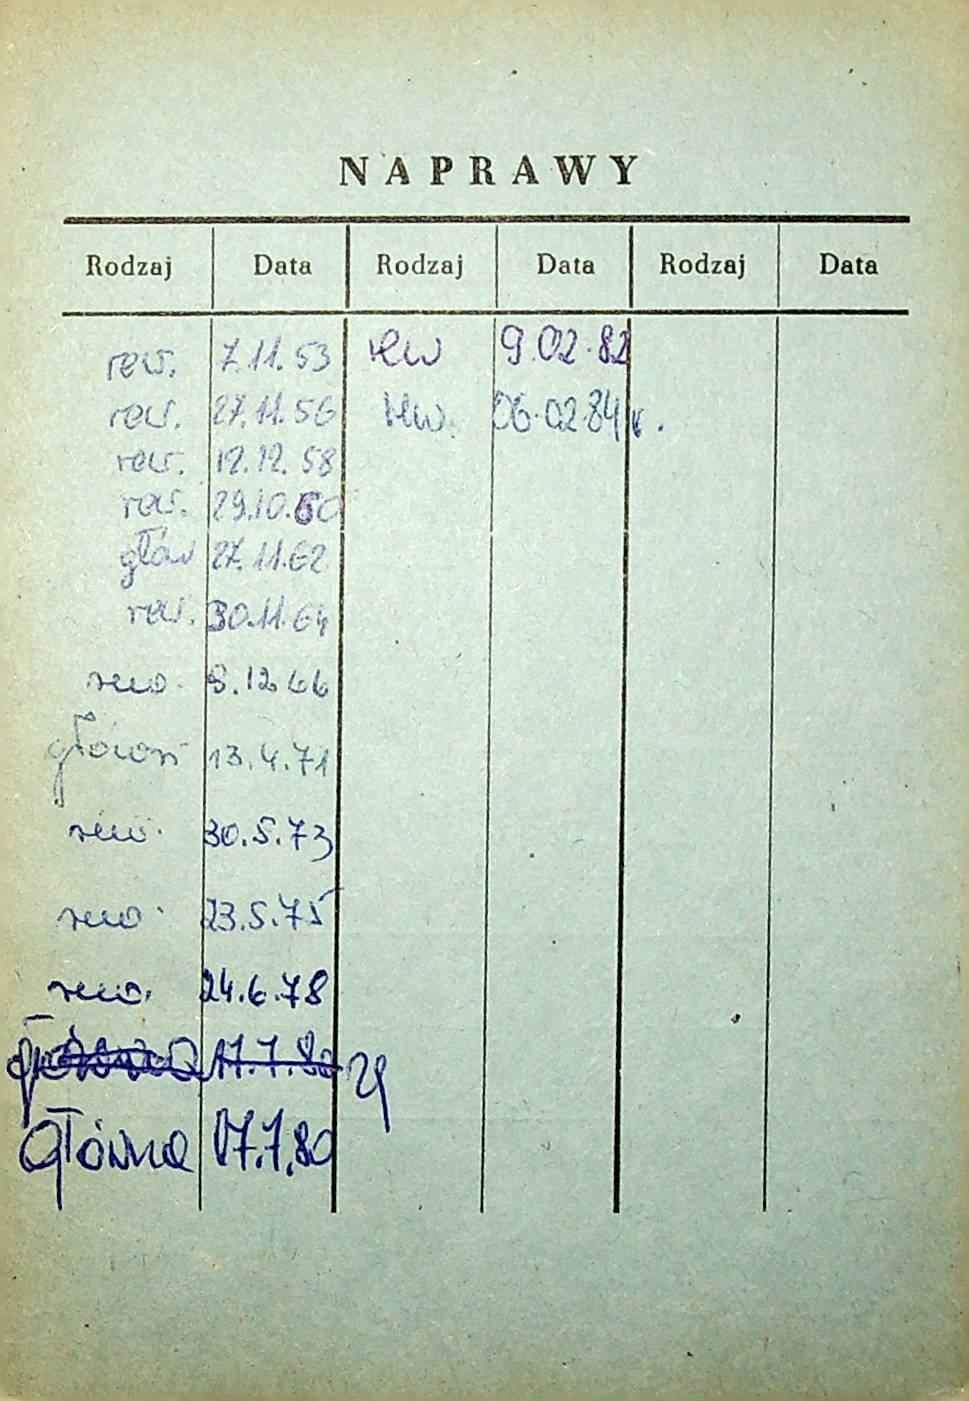 NAPRAWY
Rodzaj Data Rodzaj Data Rodzaj Data
rew. 7.11.53 rew 9.02.82
rew. 27.11.56 rew. 06.02.84 r.
rew. 12.12.58
rew. 29.10.60
głów 27.11.62
rew. 30.11.64
rew. 8.12 66
główn 13.4.71
rew. 30.5.73
rew. 23.5.75
rew. 24.6.78
Główna 17.7.80
Główna 07.7.80